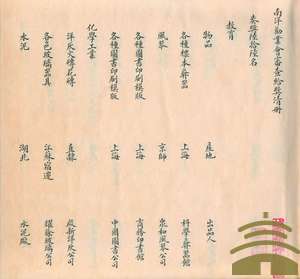 南洋勸業會審查給獎清冊
奏獎陸拾陸名
教育
物品 產地 出品人
各種標本彝器 上海 科學彝器館
風琴 京師 泉和風琴公司
各種圖書印刷模版 上海 商務印書館
各種圖書印刷模版 上海 中國圖書公司
化學工業
洋灰火磚花磚 直隸 啟新洋灰公司
各色玻璃器具 江蘇宿遷 耀徐玻璃公司
水泥 湖北 水泥廠